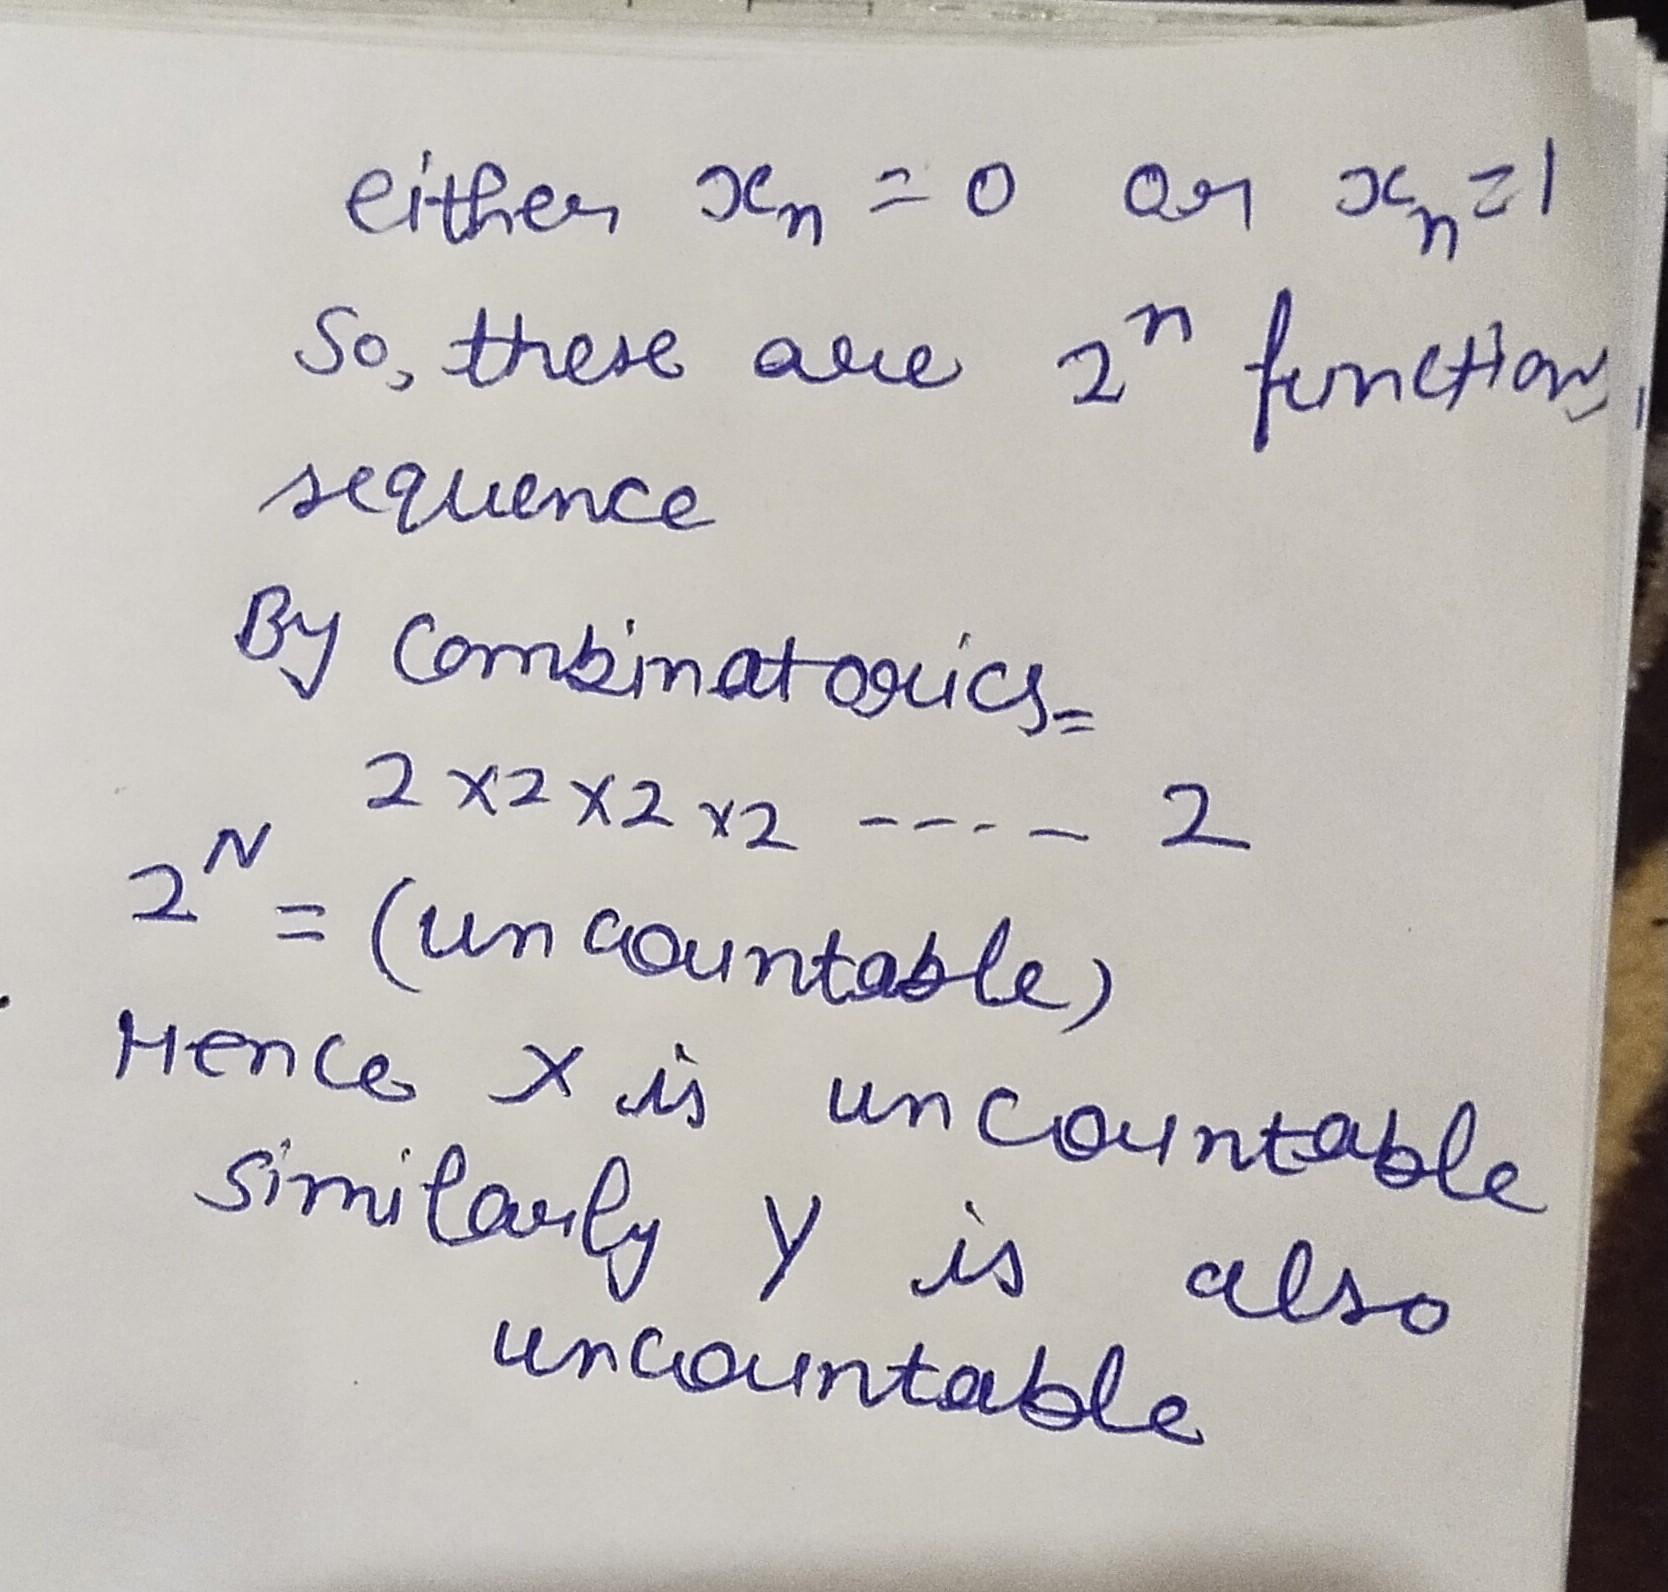 either xₙ = 0 or xₙ = 1
So, these are 2ⁿ functions,
sequence
By Combinatorics =
2 × 2 × 2 × 2 ----- 2
2ᴺ = (uncountable)
Hence X is uncountable
similarly Y is also
uncountable